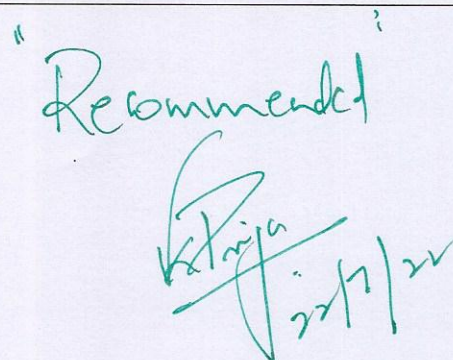 "Recommended"
VS Priya
22/7/22